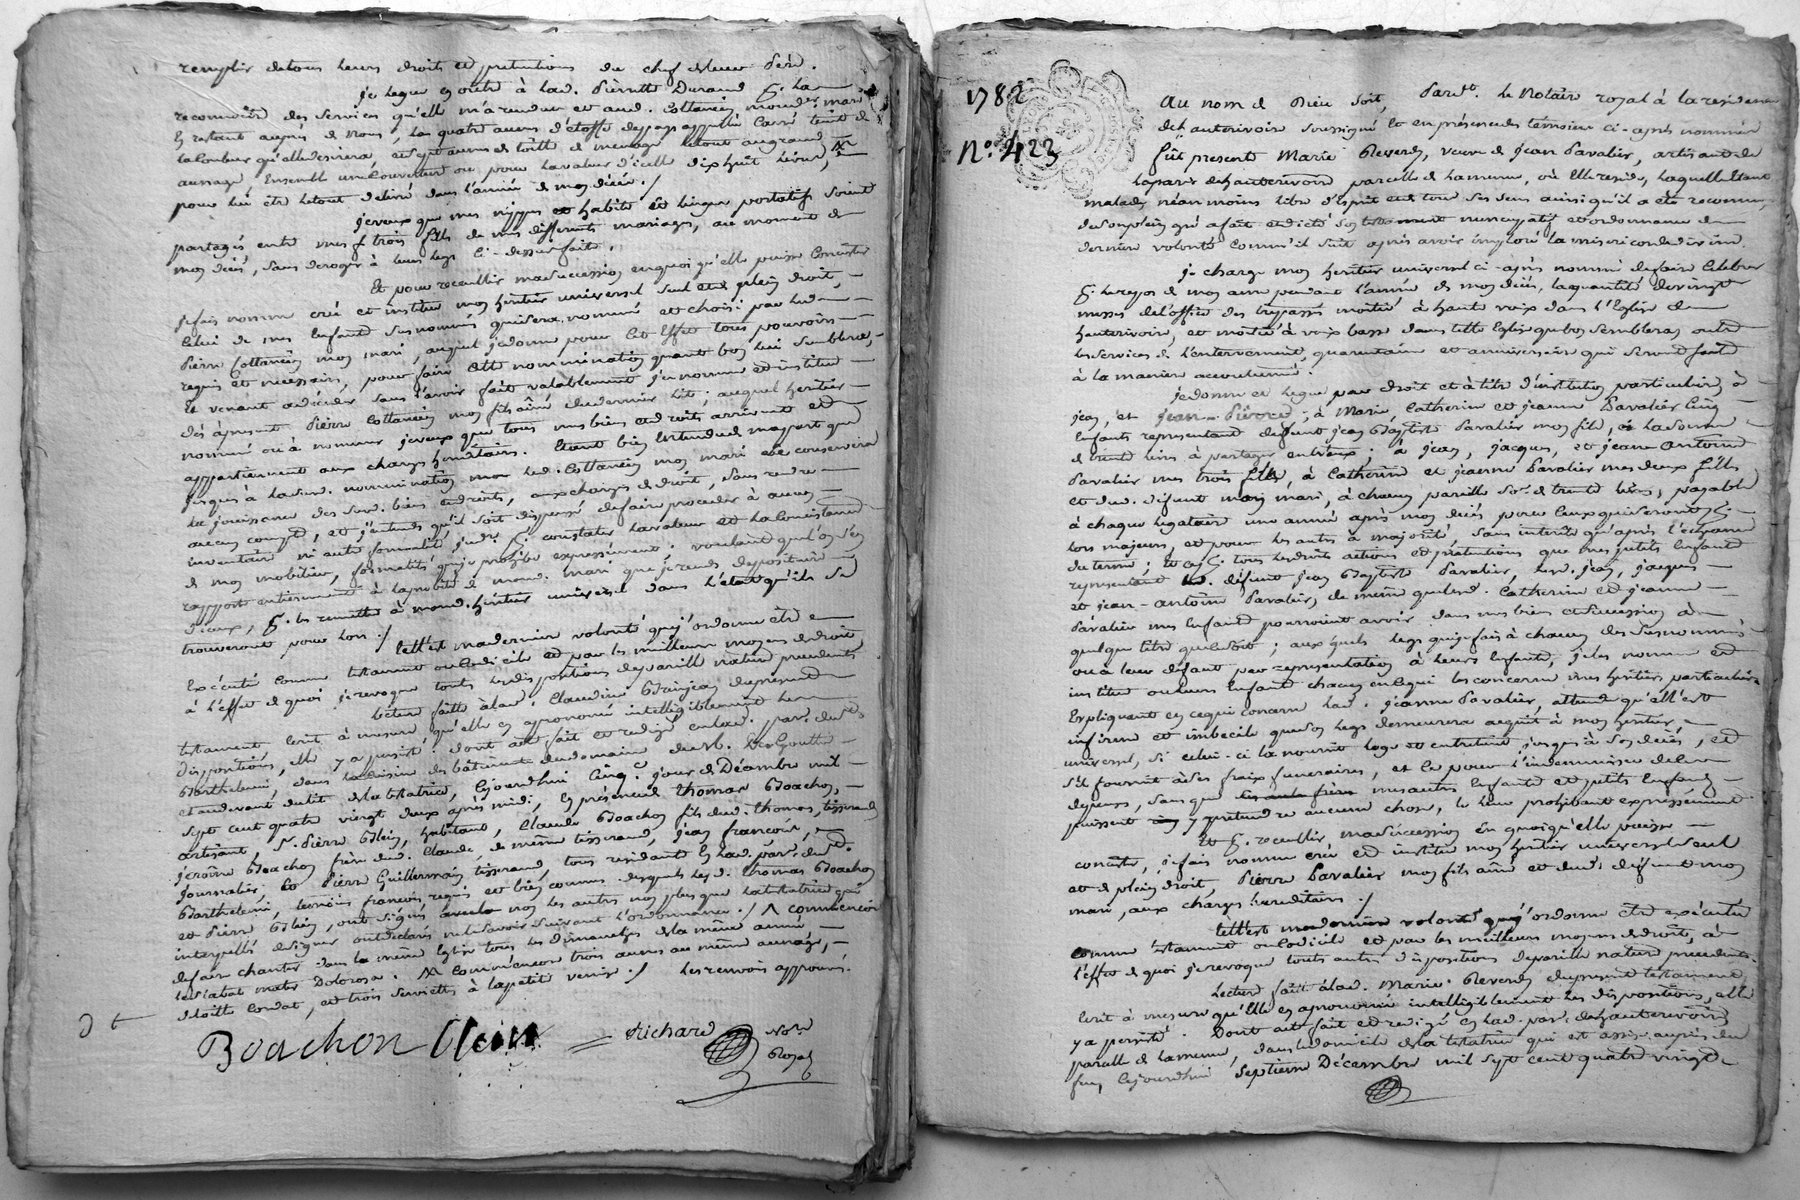 remplir de tous leurs droits et pretentions du chef de leur Pere.
je legue en outre à lad. Pierrette Durand pr. la
reconnoitre des services qu'elle m'a rendu et aud. Collancin mond. mari
en restant auprès de nous, quatre aunes d'étoffe du pays appellée Carré teint de
la couleur qu'elle desirera, et sept aunes de toille de menage le tout au grand
aunage Ensemble une couverture ou pour la valeur d'icelle dix huit livres,
pour lui être le tout delivré dans l'année de mon décès./
je veux que mes nippes et habits et linges portatifs soient
partagés entre mes trois fils de mes differents mariages, au moment de
mon décès, sans deroger à leurs legs ci-dessus faits.
Et pour recueillir ma succession en quoi qu'elle puisse consister
je fais nomme crée et institue mon heritier universel seul et de plein droit,
celui de mes enfants susnommés qui sera nommé et choisi par led.
Pierre Collancin mon mari, auquel je donne pour cet effet tous pouvoirs
requis et necessaires, pour faire cette nomination quand bon lui semblera,
Et venant a déceder sans l'avoir fait valablement j'en nomme et institue
dès àpresent Pierre Collancin mon fils aîné du dernier lit, auquel heritier
nommé ou à nommer je veux que tous mes biens et droits arrivent et
appartiennent aux charges hereditaires. Etant bien entendu que
jusques à lad. nomination led. Collancin mon mari ait et conservera
la jouissance des sus. biens et droits, aux charges de droit, sans rendre
aucun compte, et j'entends qu'il soit dispensé de faire proceder à aucun
inventaire ni autre formalité pr. constater la valeur et la consistance
de mon mobilier, formalités que je prohibe expressement; voulant qu'on s'en
rapporte entierement à la probité de mond. mari que je rends depositaire
d'iceux, pr. les remettre à mond. heritier universel dans l'état qu'ils se
trouveront pour lors./
telle est ma derniere volonté que j'ordonne être
executée comme testament ou codicile et par les meilleurs moyens de droit
à l'effet de quoi je revoque toutes les dispositions de pareille nature precedentes
Lecture faite à lad. Claudine Brinjean du present
testament, ecrit à mesure qu'elle en a prononcé intelligiblement les
dispositions, elle y a persisté. dont acte fait et redigé en lad. par. de St.
Barthelemi, dans la cuisine des bâtiments du domaine du Sr. Desgouttes
et au devant du lit de la testatrice, Cejourdhui Cinqe. jour de Décembre mil
sept cent quatre vingt deux après midi, en présence de thomas Boachon,
artisant, Sr. Pierre Blein, habitant, Claude Boachon fils dud. thomas, tisserand
jerome Boachon frere dud. Claude, de même tisserand, jean françois,
journalier et Pierre Guillermain tisserand, tous residants en lad. par. de St.
Barthelemi, temoins requis et bien connus desquels led. thomas Boachon
et Pierre Blein, ont signé avec nous les autres non plus que la testatrice
interpellés de signer ont declaré ne le savoir suivant l'ordonnance./ A commencer
de faire chanter dans la même Eglise tous les dimanches de la même année,
le stabat mater Dolorosa. comme encore trois aunes au même aunage,
de toille Cordat, et trois serviettes à la petite venise./ les renvois approuvés.
Boachon Blein Richard Nore.
Royal
1782
No. 423
Au nom de Dieu soit, Pardt. le Notaire royal à la residence
de hauterivoire soussigné et en présence des temoins ci-après nommés
fût presente Marie Reverdy, veuve de jean Pavalier, artisant de
la par. de hauterivoire parcelle de lamure, où elle reside, laquelle étant
malade, néanmoins libre d'esprit et de tous ses sens ainsi qu'il a été reconnu,
de son plein gré a fait et dicté son testament nuncupatif et ordonnance de
derniere volonté comme il suit après avoir imploré la misericorde divine.
je charge mon heritier universel ci-après nommé de faire celebrer
pr. le repos de mon ame pendant l'année de mon décès, la quantité de vingt
messes de l'office des trepassés moitié à haute voix dans l'Eglise de
hauterivoire, et moitié à voix basse dans telle Eglise que bon semblera, outre
les services de l'enterrement, quarantaine et anniversaire qui seront faits
à la maniere accoutumée.
je donne et legue par droit et à titre d'institution particuliere, à
jean, et jean-Pierre, à Marie, Catherine et jeanne Pavalier Cinq
Enfants representants defunt jean Baptiste Pavalier mon fils, la somme
de trente livres à partager entr'eux; à jean, jacques, et jean antoine
Pavalier mes trois fils, à Catherine et jeanne Pavalier mes deux filles
et dud. défunt mon mari, à chacun pareille so. de trente livres, payable
à chaque legataire une année après mon décès pour ceux qui seront
lors majeurs, et pour les autres à majorité, sans interêts qu'après l'echeance
du terme; et ce pr. tous les droits actions et pretentions que mes petits enfants
representants led. défunt jean Baptiste Pavalier, led. jean, jacques
et jean-antoine Pavalier, de même que lesd. Catherine et jeanne
Pavalier mes enfants pourroient avoir dans mes biens et succession à
quelque titre que ce soit; auxquels legs que je fais à chacun des susnommés
ou à leur défaut par representation à leurs enfants, je les nomme et
institue ou leurs Enfants chacun en ce qui les concerne mes heritiers particuliers
Expliquant en ce qui concerne lad. jeanne Pavalier, attendu qu'elle est
infirme et imbecile que son legs demeurera acquit à mon heritier
universel, si celui-ci la nourrit loge et entretient jusques à son décès, et
s'il fournit à ses fraix funeraires, et ce pour l'indemniser de
depenses, sans que mes autres enfants et petits enfants
puissent y pretendre aucune chose, le leur prohibant expressément
Et pr. recueillir ma succession en quoi qu'elle puisse
consister, je fais nomme crée et institue mon heritier universel seul
et de plein droit, Pierre Pavalier mon fils aîné et dud. défunt mon
mari, aux charges hereditaires./
telle est ma derniere volonté que j'ordonne être executée
comme testament ou codicile et par les meilleurs moyens de droit, à
l'effet de quoi je revoque toutes autres dispositions de pareille nature precedentes.
Lecture faite à lad. Marie Reverdy du present testament,
écrit à mesure qu'elle en a prononcé intelligiblement les dispositions, elle
y a persisté. Dont acte fait et redigé en lad. par. de hauterivoire
parcelle de lamure, dans le domicile de la testatrice qui est assise auprès du
feu, Cejourdhui septieme Décembre mil sept cent quatre vingt